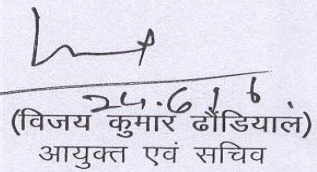 24.6.16.
(विजय कुमार ढौंडियाल)
आयुक्त एवं सचिव